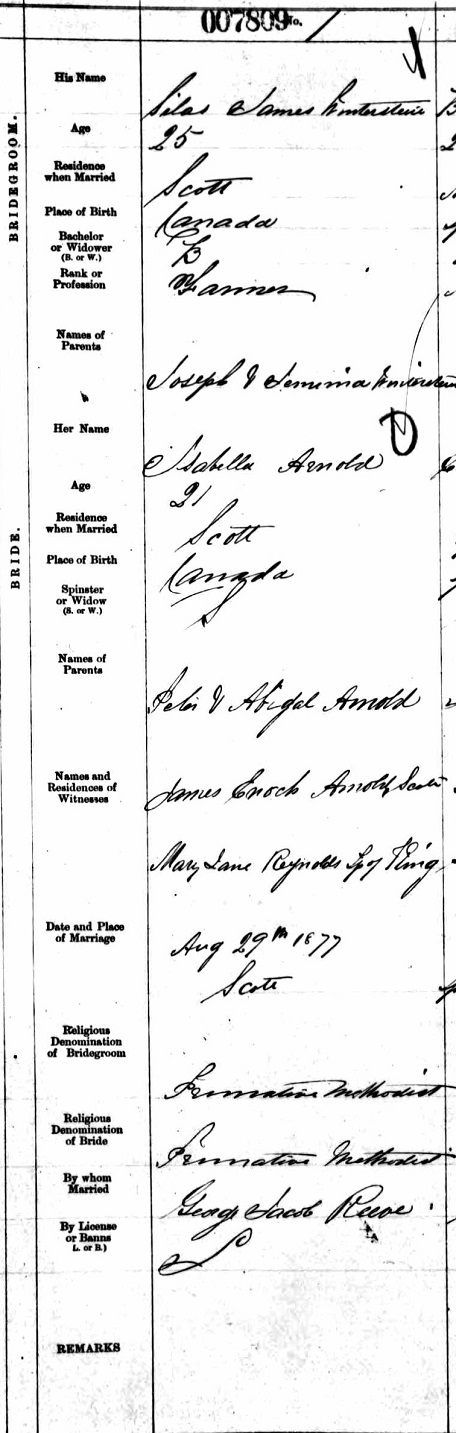 007809 No. 1
BRIDEGROOM.
His Name
Silas James Winterstein
Age
25
Residence
when Married
Scott
Place of Birth
Canada
Bachelor
or Widower
(B. or W.)
B
Rank or
Profession
Farmer
Names of
Parents
Joseph & Jemima Winterstein
BRIDE.
Her Name
Isabella Arnold
Age
21
Residence
when Married
Scott
Place of Birth
Canada
Spinster
or Widow
(S. or W.)
S
Names of
Parents
Peter & Abigal Arnold
Names and
Residences of
Witnesses
James Enoch Arnold, Scott
Mary Jane Reynolds Tp of King
Date and Place
of Marriage
Aug 29th 1877
Scott
Religious
Denomination
of Bridegroom
Primative Methodist
Religious
Denomination
of Bride
Primative Methodist
By whom
Married
George Jacob Reeve
By License
or Banns
(L. or B.)
L
REMARKS